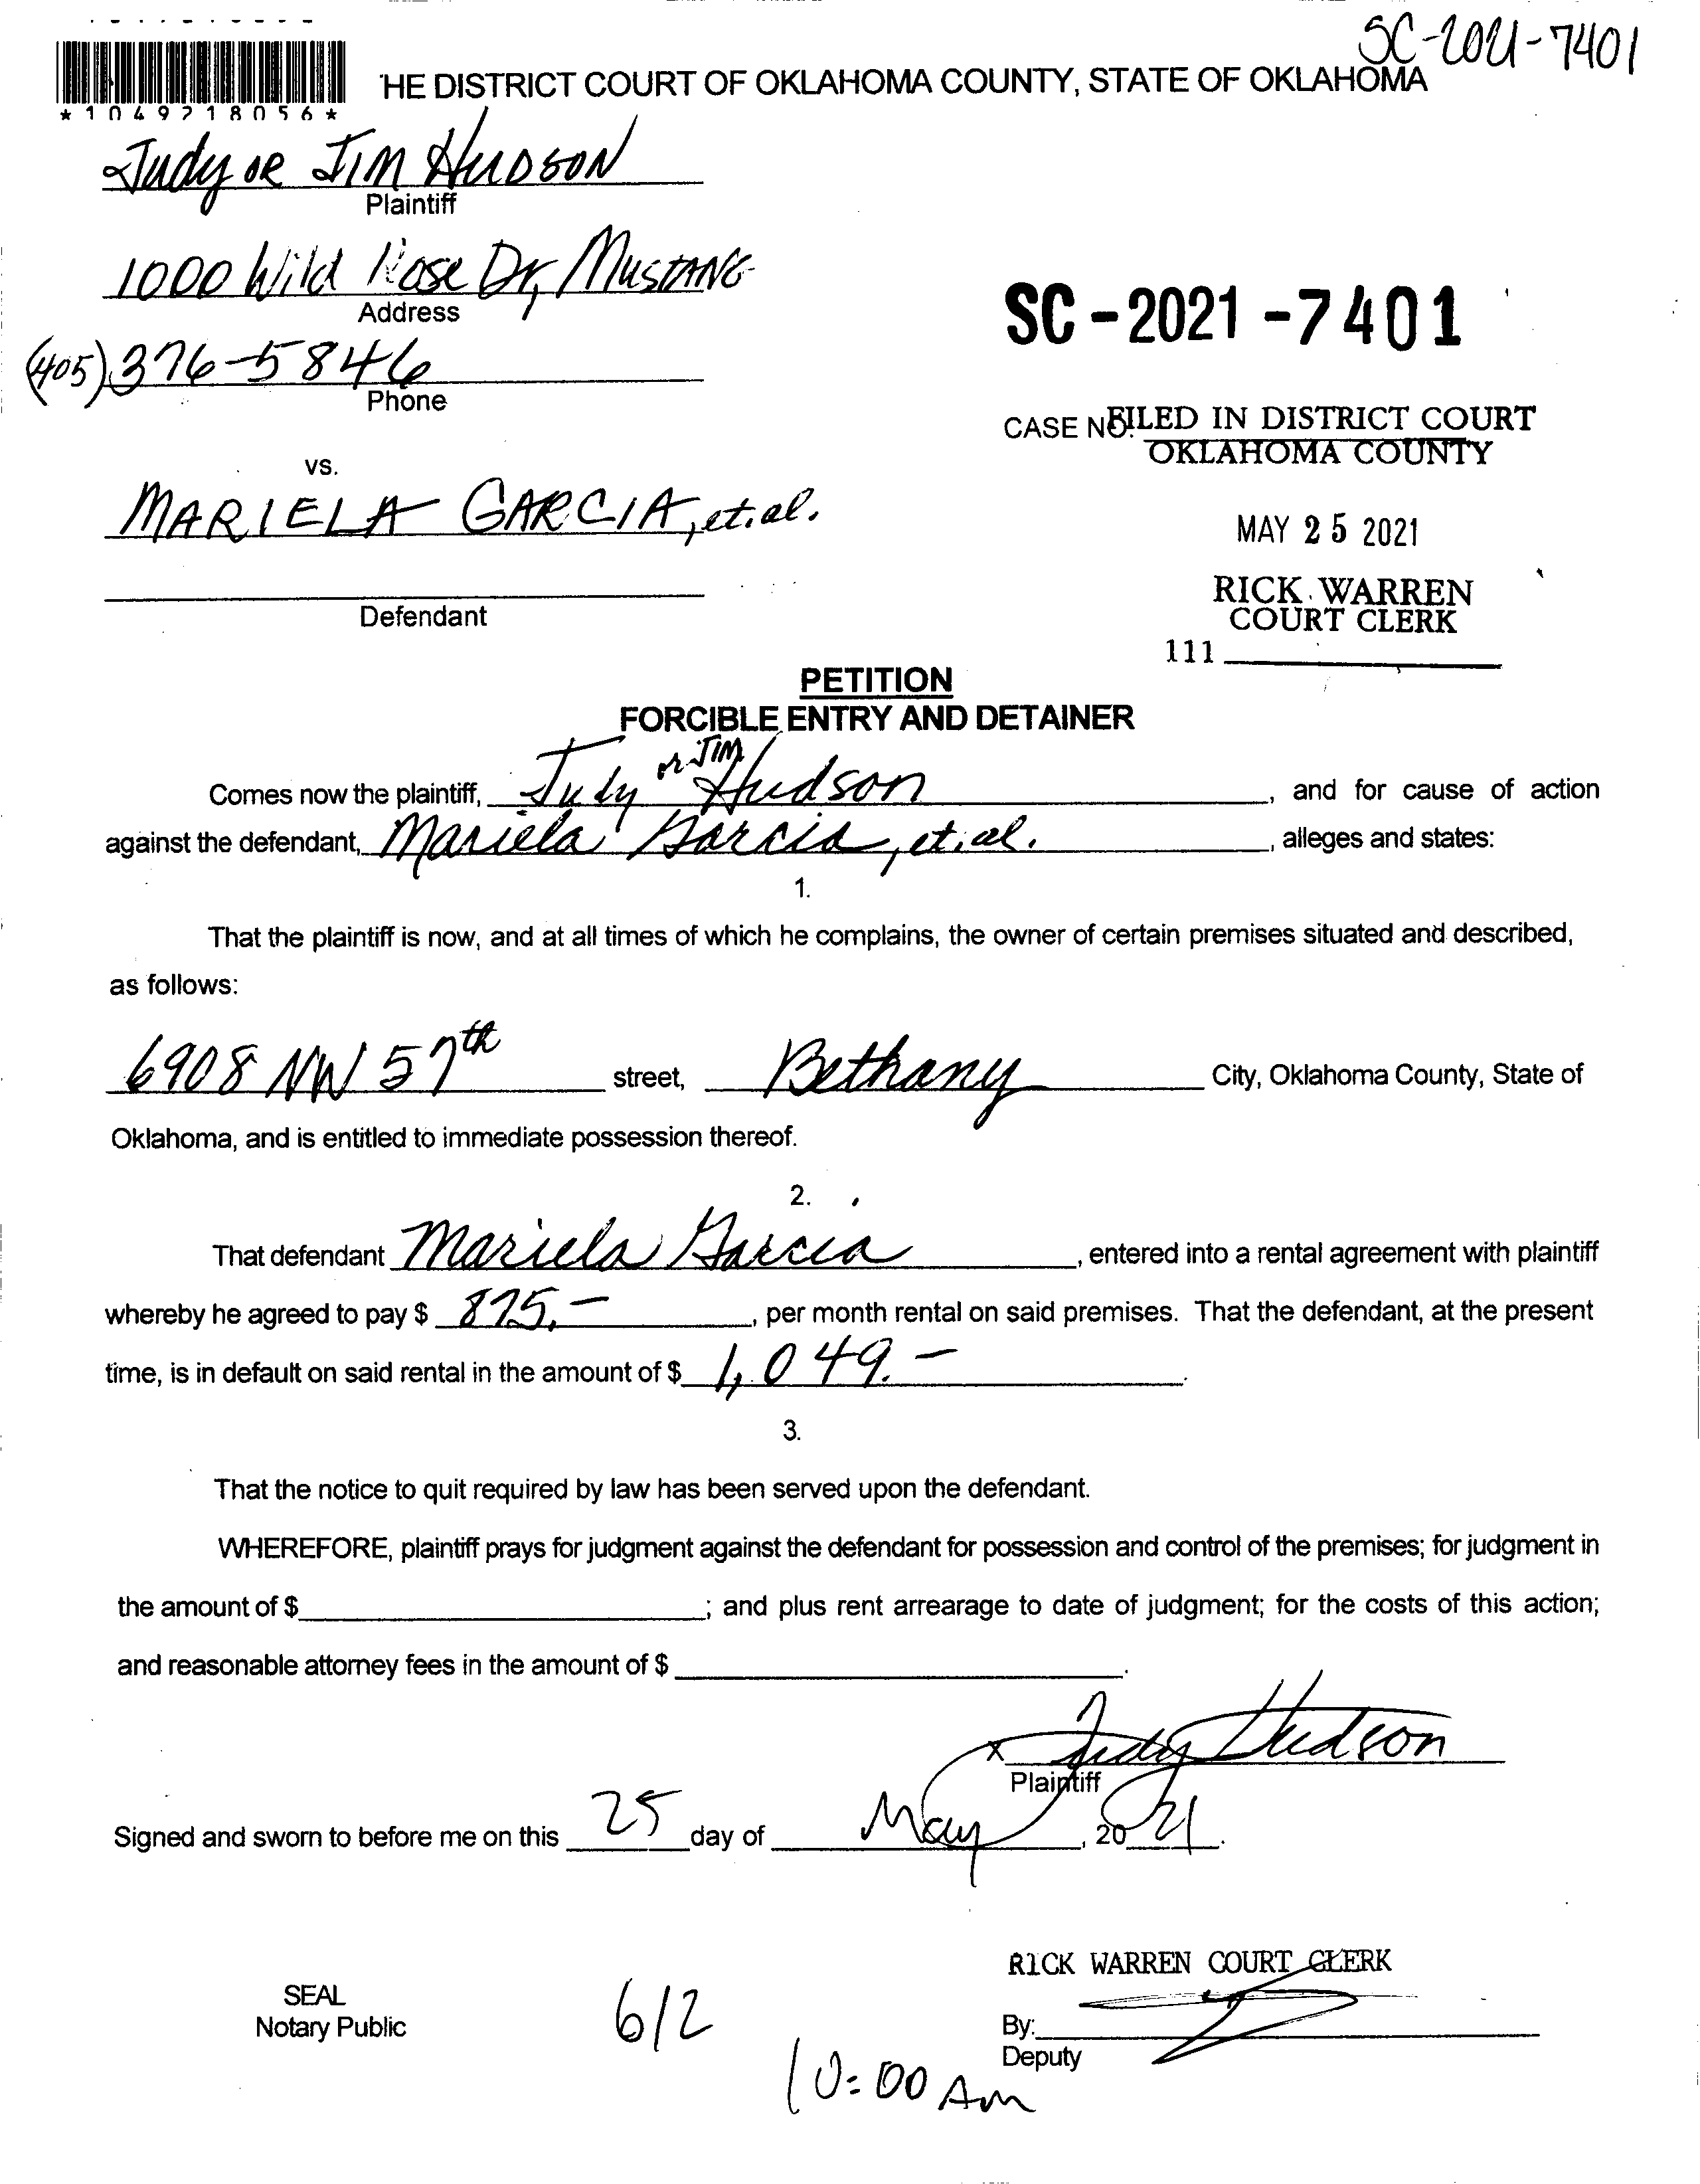 SC-2021-7401
HE DISTRICT COURT OF OKLAHOMA COUNTY, STATE OF OKLAHOMA
*1049218056*
Judy or Jim Hudson
Plaintiff
1000 Wild Rose Dr, Mustang
Address
SC-2021-7401
(405) 376-5846
Phone
CASE NO. FILED IN DISTRICT COURT
OKLAHOMA COUNTY
vs.
MARIELA GARCIA, et.al.
MAY 25 2021
RICK WARREN
COURT CLERK
Defendant
111
PETITION
FORCIBLE ENTRY AND DETAINER
Comes now the plaintiff, Judy or Jim Hudson, and for cause of action
against the defendant, Mariela Garcia, et.al., alleges and states:
1.
That the plaintiff is now, and at all times of which he complains, the owner of certain premises situated and described,
as follows:
6908 NW 57th street, Bethany City, Oklahoma County, State of
Oklahoma, and is entitled to immediate possession thereof.
2.
That defendant Mariela Garcia, entered into a rental agreement with plaintiff
whereby he agreed to pay $ 875.-, per month rental on said premises. That the defendant, at the present
time, is in default on said rental in the amount of $ 1,049.-.
3.
That the notice to quit required by law has been served upon the defendant.
WHEREFORE, plaintiff prays for judgment against the defendant for possession and control of the premises; for judgment in
the amount of $; and plus rent arrearage to date of judgment; for the costs of this action;
and reasonable attorney fees in the amount of $.
x Judy Hudson
Plaintiff
Signed and sworn to before me on this 25 day of May, 2021.
RICK WARREN COURT CLERK
SEAL
Notary Public
6/2
By:
Deputy
10:00 Am